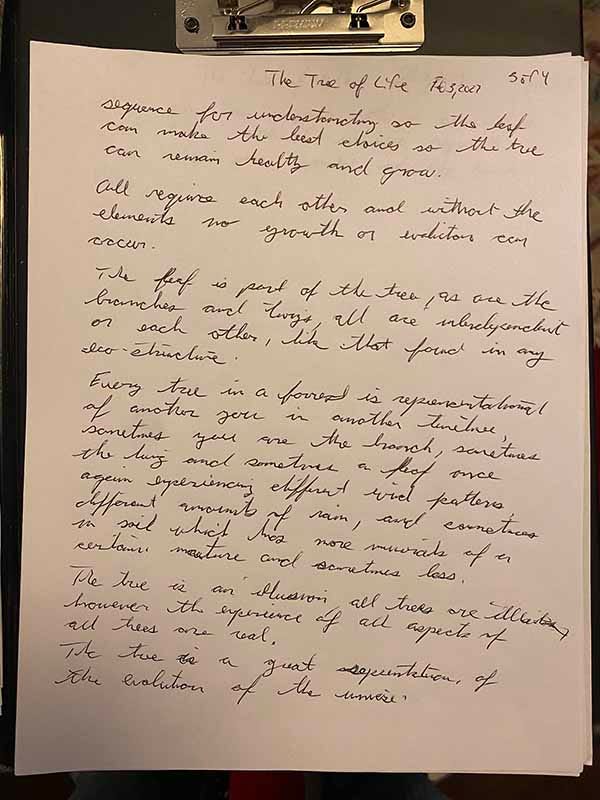 The Tree of Life Feb 3, 2021 3 of 4
sequence for understanding so the leaf
can make the best choices so the tree
can remain healthy and grow.
All require each other and without the
elements no growth or evolution can
occur.
The leaf is part of the tree, as are the
branches and twigs, all are interdependent
on each other, like that found in any
eco-structure.
Every tree in a forrest is representational
of another you in another timeline,
sometimes you are the branch, sometimes
the twig and sometimes a leaf once
again experiencing different wind patterns,
different amounts of rain, and sometimes
in soil which has more minerals of a
certain nature and sometimes less.
The tree is an illusion, all trees are
however the experience of all aspects of
all trees are real.
The tree is a great representation of
the evolution of the universe.